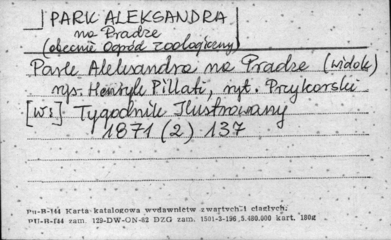 PARK ALEKSANDRA
na Pradze
(obecnie Ogród Zoologiczny)
Park Aleksandra na Pradze (widok)
rys. Henryk Pillati, ryt. Przykorski
[W:] Tygodnik Ilustrowany
1871 (2) 137
Pu-B-144 Karta katalogowa wydawnictw zwartych i ciągłych.
PU-B-144 zam. 129-DW-ON-82 DZG zam. 1501-3-196 5.480.000 kart. 180g